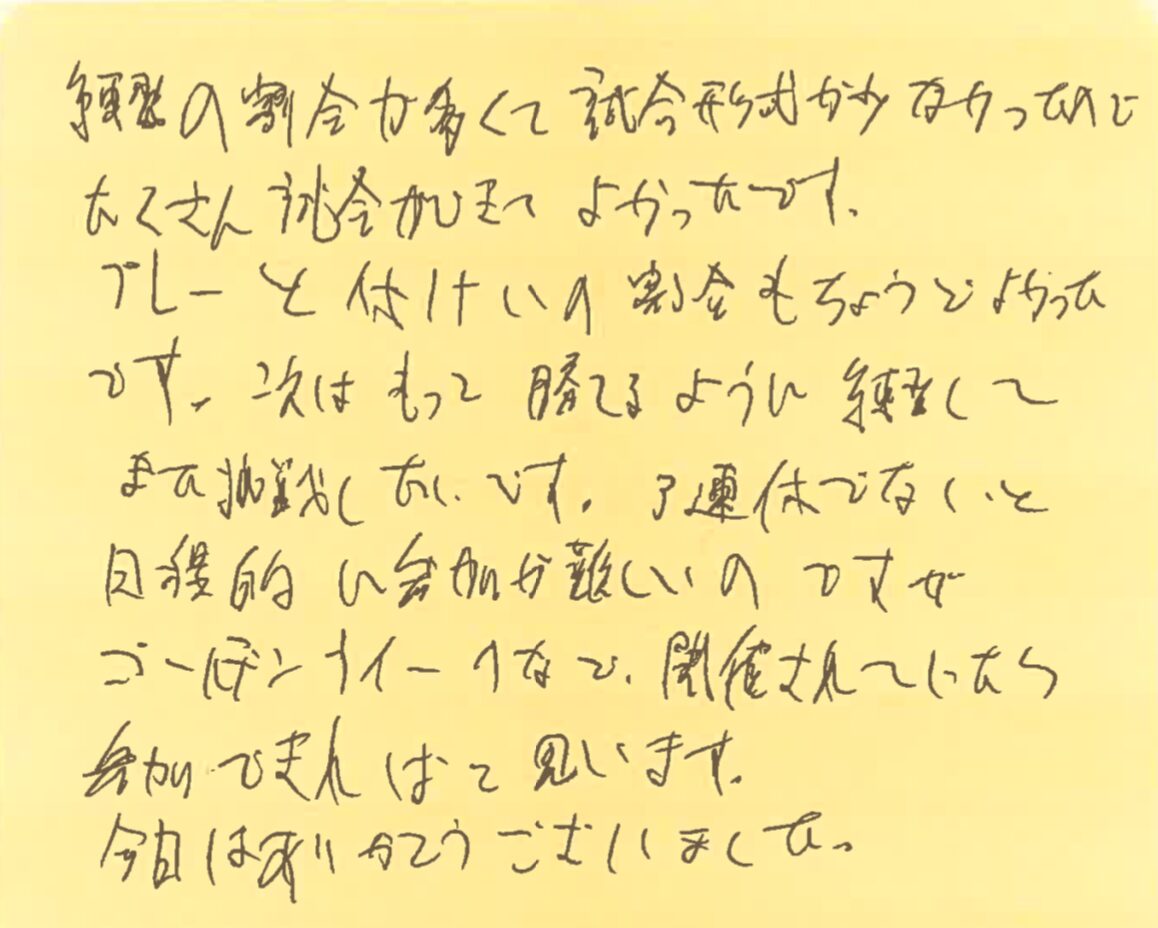 練習の割合が多くて試合形式が少なかったので
たくさん試合ができてよかったです。
プレーと付けいの割合もちょうどよかった
です。次はもって勝てるように練習して
また挑戦したいです。3連休でないと
日程的に参加が難しいのですが
ゴールデンウィークなどで、開催されていたら
参加できればと思います。
今日はありがとうございました。